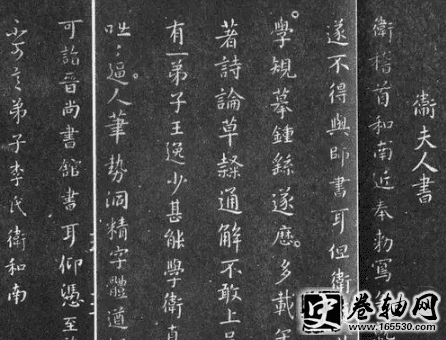 衛夫人書
衛稽首和南近奉勅寫
遂不得與師書耳但衛
學規摹鍾繇遂歷多載
著詩論草隸通解不敢上
有一弟子王逸少甚能學衛真
咄〻逼人筆勢洞精字體遒
可詣晉尚書館書耳仰憑至
弟子李氏衛和南
史
卷轴网
www.165530.com